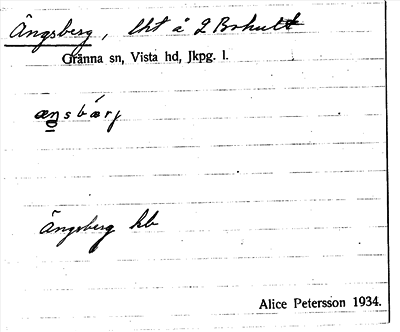 Ängsberg, lht å 2 Bohult
Gränna sn, Vista hd, Jkpg. l.
æŋsbærj
Ängsberg hb
Alice Petersson 1934.